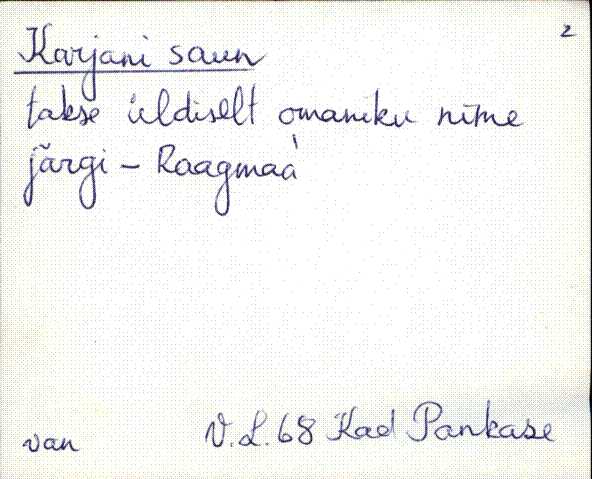 2
Karjani saun
takse üldiselt omaniku nime
järgi – Raagmaa
van V.L. 68 Kad Pankase